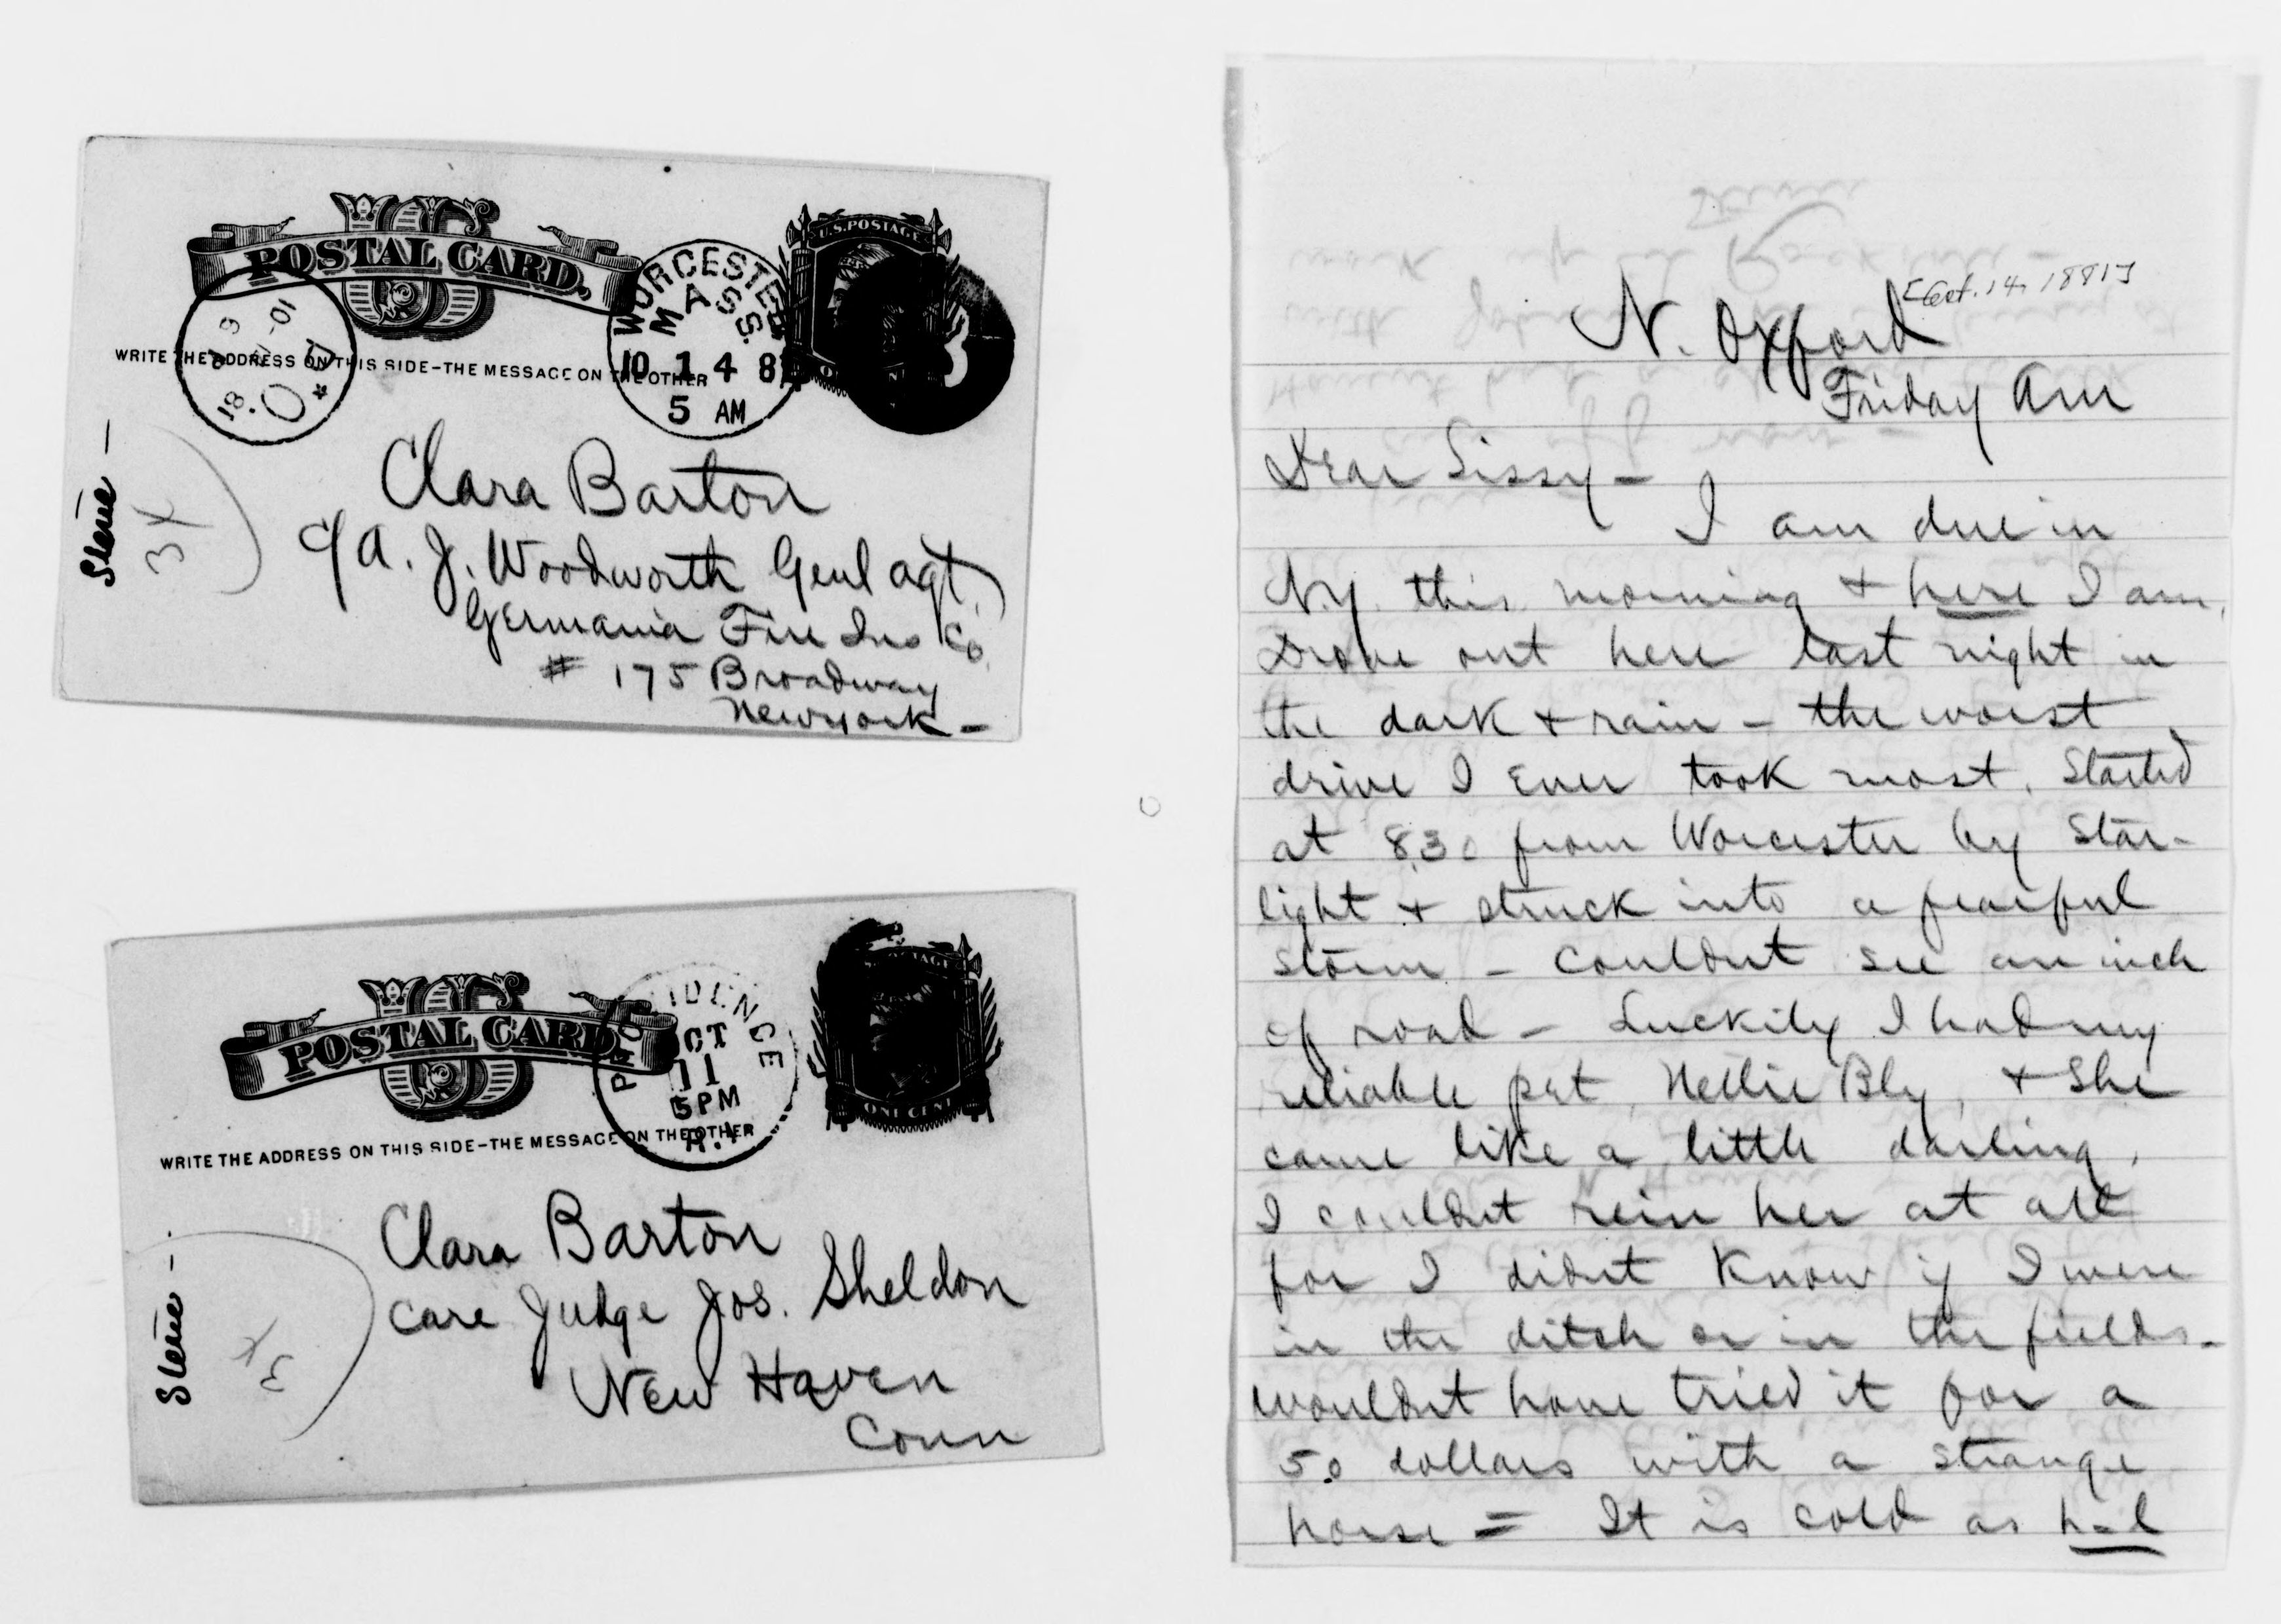 US
POSTAL CARD.
WORCESTER
MASS.
10 14 8
5 AM
U.S. POSTAGE
WRITE THE ADDRESS ON THIS SIDE-THE MESSAGE ON THE OTHER
Clara Barton
c/ A. J. Woodworth Genl agt.
Germania Fire Ins Co.
# 175 Broadway
New York -
Steve -
3X
US
POSTAL CARD.
PROVIDENCE
OCT
11
5 PM
R.I.
ONE CENT
WRITE THE ADDRESS ON THIS SIDE-THE MESSAGE ON THE OTHER
Clara Barton
Care Judge Jos. Sheldon
New Haven
Conn
Steve -
3X
[Oct. 14, 1881]
N. Oxford
Friday Am
Dear Sissy -
I am due in
N.Y. this morning + here I am.
Drove out here last night in
the dark + rain - the worst
drive I Ever took most. Started
at 8.30 from Worcester by Star-
light + struck into a fearful
storm - Couldnt see an inch
of road - Luckily I had my
reliable pet, Nellie Bly, + She
came like a little darling.
I couldnt rein her at all
for I didnt Know if I were
in the ditch or in the fields -
wouldnt have tried it for a
50 dollars with a strange
horse = It is cold as h-l